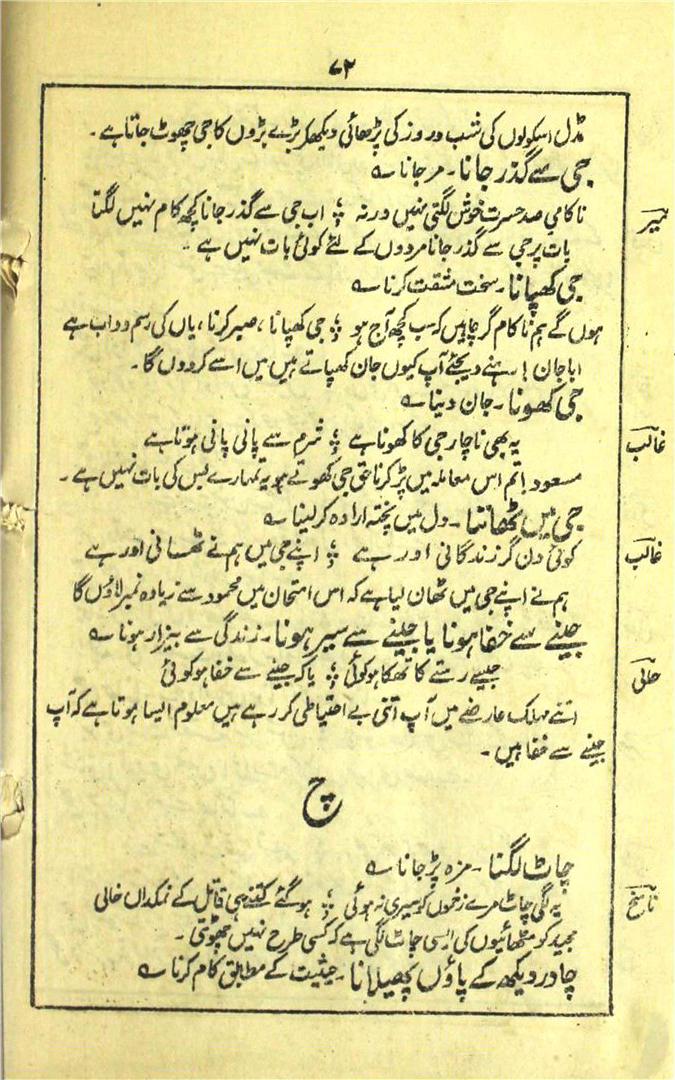 ۷۲
مڈل اسکولوں کی شب و روز کی پڑھائی دیکھکر بڑے بڑوں کا جی چھوٹ جاتا ہے ۔
جی سے گذر جانا ۔ مر جانا ؎
میر ناکامیِ صد حسرت خوش لگتی نہیں ورنہ ؛ اب جی سے گذر جانا کچھ کام نہیں لگتا
بات پر جی سے گذر جانا مردوں کے لئے کوئی بات نہیں ہے ۔
جی کھپانا ۔ سخت مشقت کرنا ؎
ہوں گے ہم ناکام گر چاہیں کہ سب کچھ آج ہو ؛ جی کھپانا ، صبر کرنا ، یاں کی رسم و داب ہے
ابا جان ! رہنے دیجئے آپ کیوں جان کھپاتے ہیں میں اسے کر دوں گا ۔
جی کھونا ۔ جان دینا ؎
غالب یہ بھی ناچار جی کا کھونا ہے ؛ شرم سے پانی پانی ہوتا ہے
مسعود ! تم اس معاملہ میں پڑ کر ناحق جی کھوتے ہو یہ تمہارے بس کی بات نہیں ہے ۔
جی میں ٹھاننا ۔ دل میں پختہ ارادہ کر لینا ؎
غالب کوئی دن گر زندگانی اور ہے ؛ اپنے جی میں ہم نے ٹھانی اور ہے
ہم نے اپنے جی میں ٹھان لیا ہے کہ اس امتحان میں محمود سے زیادہ نمبر لاؤں گا
جینے سے خفا ہونا یا جینے سے سیر ہونا ۔ زندگی سے بیزار ہونا ؎
حالی جیسے رستے کا تھکا ہو کوئی ؛ یا کہ جینے سے خفا ہو کوئی
اتنے مہلک عارضے میں آپ اتنی بے احتیاطی کر رہے ہیں معلوم ایسا ہوتا ہے کہ آپ
جینے سے خفا ہیں ۔
چ
چاٹ لگنا ۔ مزہ پڑ جانا ؎
ناسخ یہ لگی چاٹ مرے زخموں کو سیری نہ ہوئی ؛ ہو گئے کتنے ہی قاتل کے نمکداں خالی
مجید کو مٹھائیوں کی ایسی چاٹ لگی ہے کہ کسی طرح نہیں چھوٹتی ۔
چادر دیکھ کے پاؤں پھیلانا ۔ حیثیت کے مطابق کام کرنا ؎